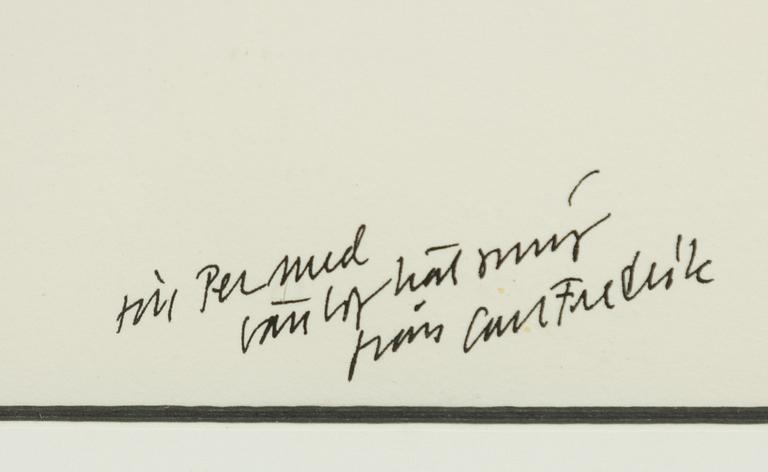 till Per med
vänlig hälsning
från Carl Fredrik